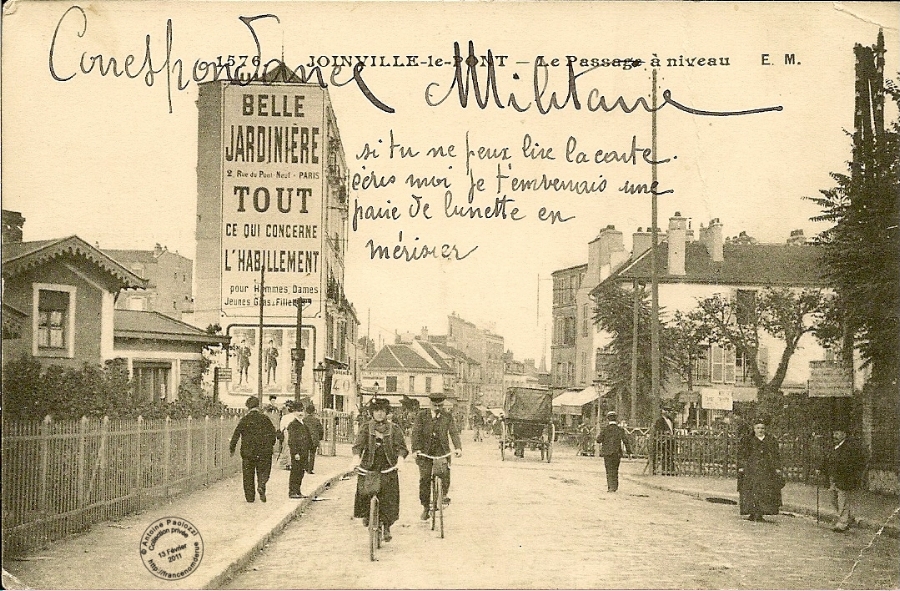 1576 JOINVILLE-le-PONT — Le Passage à niveau E. M.
Correspondance Militaire
si tu ne peux lire la carte.
écris moi je t'enverrais une
paire de lunette en
mérisier
BELLE
JARDINIÈRE
2, Rue du Pont Neuf - PARIS
TOUT
CE QUI CONCERNE
L'HABILLEMENT
pour Hommes, Dames
Jeunes Gens & Fillettes
© Antoine Paolozzi
Collection privée
13 Février
2011